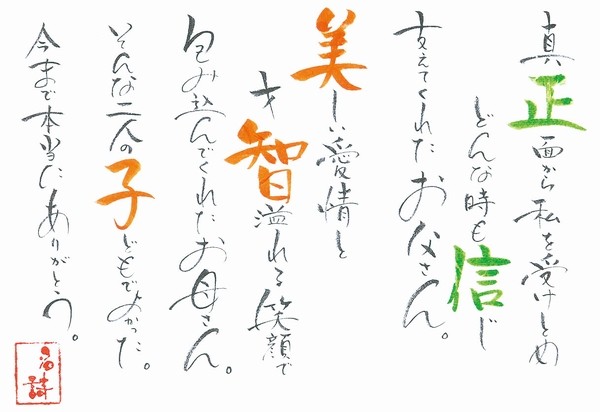 真正面から私を受けとめ
どんな時も信じ
支えてくれたお父さん。
美しい愛情と
才智溢れる笑顔で
包み込んでくれたお母さん。
そんな二人の子どもでよかった。
今まで本当にありがとう。